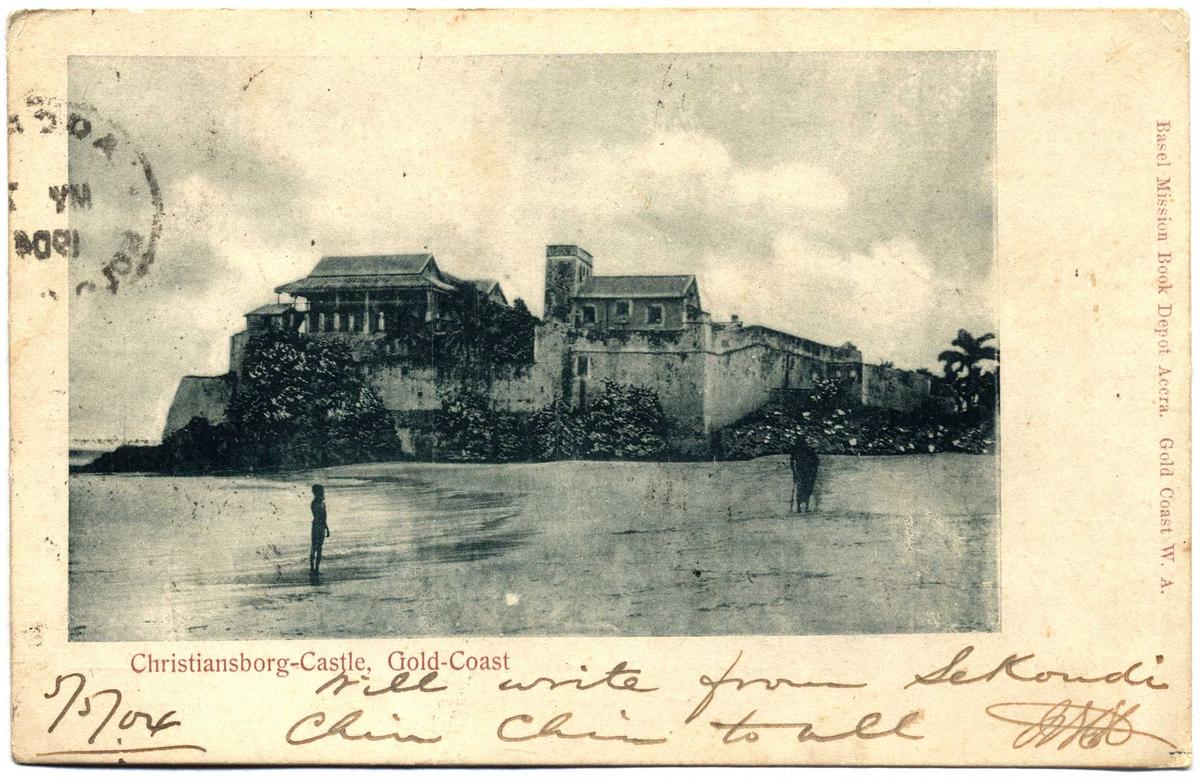 Christiansborg-Castle, Gold-Coast
Will write from Sekondi
5/5/04 Chin Chin to all
Basel Mission Book Depot Accra. Gold Coast W. A.
MY
1904